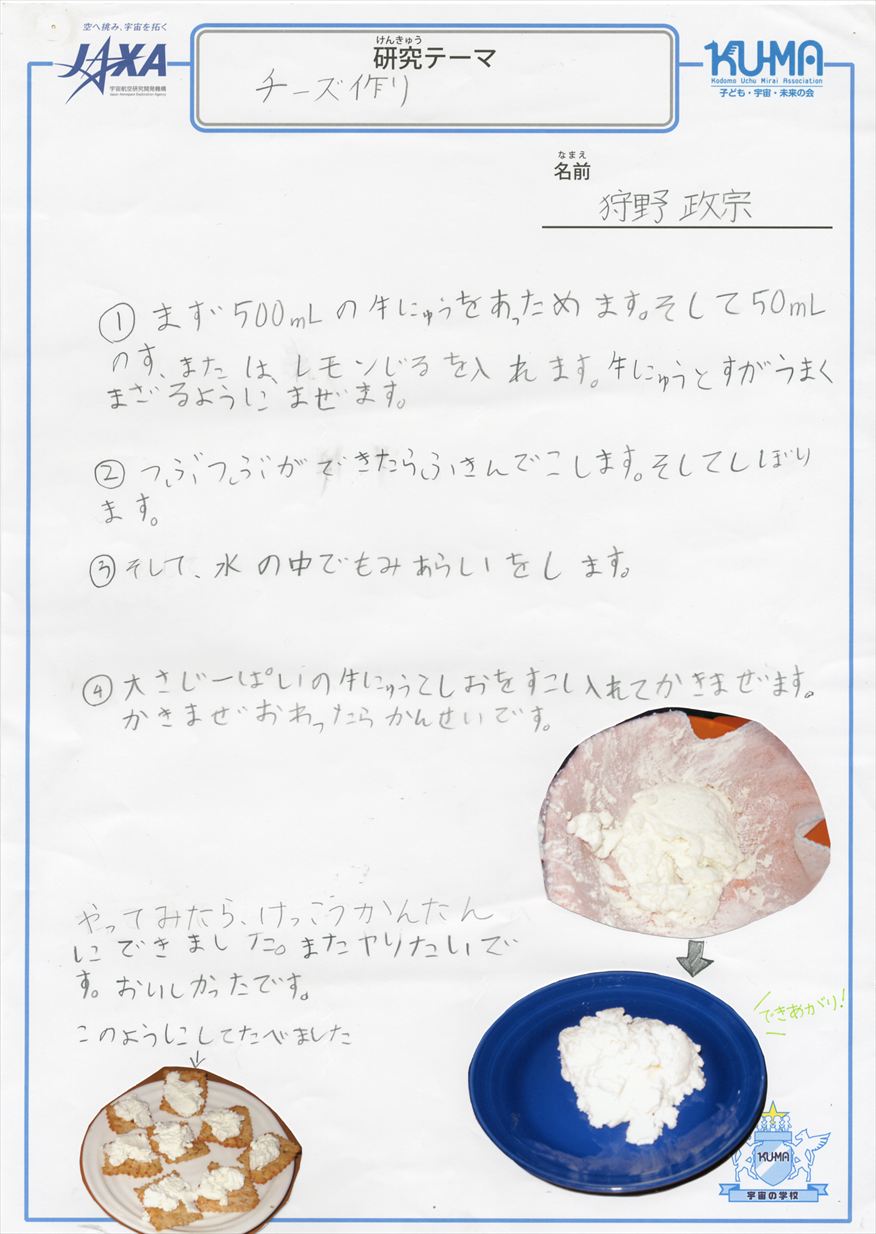 空へ挑み、宇宙を拓く
JAXA
宇宙航空研究開発機構
Japan Aerospace Exploration Agency
けんきゅう
研究テーマ
チーズ作り
KU-MA
Kodomo Uchu Mirai Association
子ども・宇宙・未来の会
なまえ
名前
狩野 政宗
① まず500mLの牛にゅうをあっためます。そして50mL
のす、または、レモンじるを入れます。牛にゅうとすがうまく
まざるようにまぜます。
② つぶつぶができたらふきんでこします。そしてしぼり
ます。
③ そして、水の中でもみあらいをします。
④ 大さじ一ぱいの牛にゅうとしおをすこし入れてかきまぜます。
かきまぜおわったらかんせいです。
やってみたら、けっこうかんたん
にできました。またヤりたいで
す。おいしかったです。
このようにしてたべました
できあがり!
KU-MA
宇宙の学校